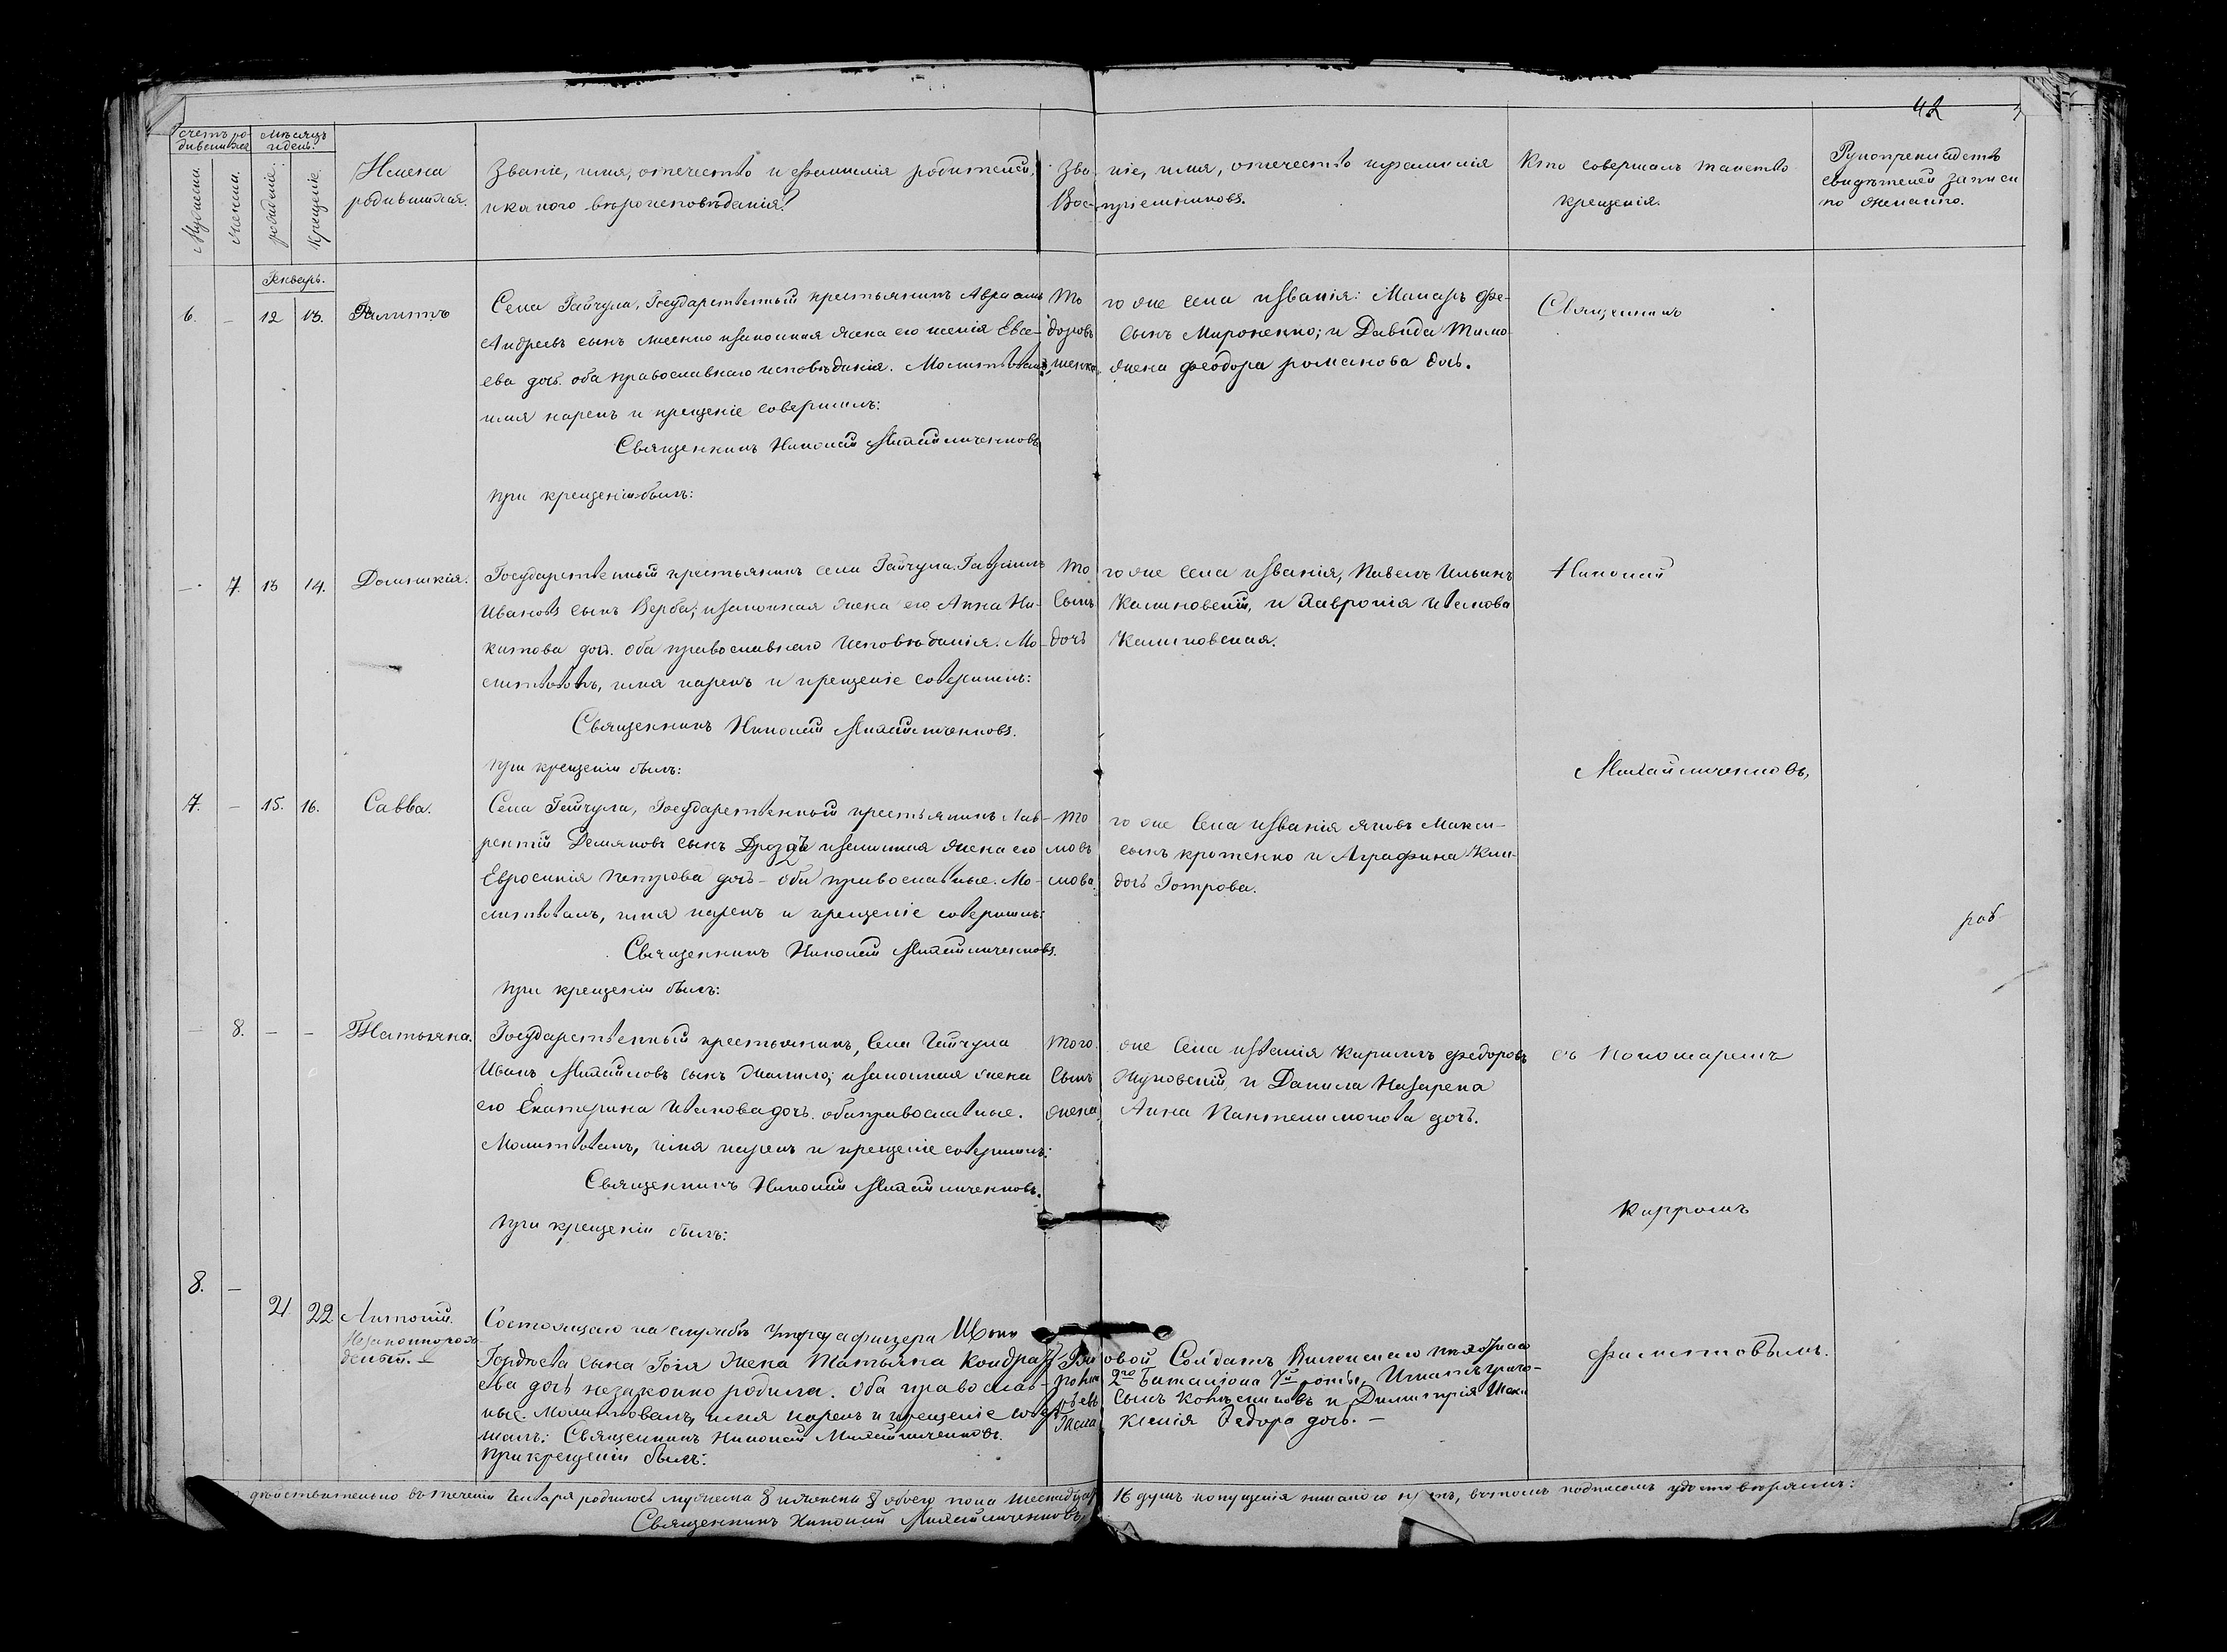 42
Счетъ ро-
дившихся
Мѣсяцъ
и день.
Мужеска.
Женска.
рожденіе.
Крещеніе.
Имена
родившихся.
Званіе, имя, отечество и фамилія родителей,
и какого вѣроисповѣданія.
Зва ніе, имя, отечество и фамилія
Вос- пріемниковъ.
Кто совершалъ таинство
крещенія.
Рукоприкладство
свидѣтелей записи
по желанію.
Генварь.
6. – 12 13. Филиппъ
Села Гайчула, Государственный крестьянинъ Авраамъ
Андреевъ сынъ Лисенко и законная жена его Ксенія Евсе-
ева дочь. оба православнаго исповѣданія. Молитвовалъ,
имя нарекъ и крещеніе совершилъ:
Священникъ Николай Михайличенковъ
при крещеніи былъ:
То го же села и званія: Макаръ Фе-
доровъ сынъ Мироненко; и Давида Тимо-
шенка жена Феодора романова дочь.
Священникъ
– 7. 13 14. Домникія.
Государственный крестьянинъ села Гайчула Гавріилъ
Ивановъ сынъ Верба; и законная жена его Анна Ни-
китова дочь. оба православнаго исповѣданія. Мо-
литвовалъ, имя нарекъ и крещеніе совершилъ:
Священникъ Николай Михайличенковъ.
при крещеніи былъ:
То го же села и званія, Павелъ Ильинъ
сынъ Калиновскій, и Іаковова
дочь Калиновская.
Николай
Михайличенковъ,
7. – 15. 16. Савва.
Села Гайчула, Государственный крестьянинъ Лав-
рентій Демяновъ сынъ Дроздъ и законная жена его
Евросинія Петрова дочь – оба православные. Мо-
литвовалъ, имя нарекъ и крещеніе совершилъ:
Священникъ Николай Михайличенковъ.
при крещеніи былъ:
То го же села и званія Яковъ Макси-
мовъ сынъ кротенко и Аграфина Кли-
мова дочь
раб
– 8. – – Татьяна.
Государственный крестьянинъ, села Гайчула
Иванъ Михайловъ сынъ и законная жена
его Екатерина Іаковова дочь. оба православные.
Молитвовалъ, имя нарекъ и крещеніе совершилъ:
Священникъ Николай Михайличенковъ.
при крещеніи былъ:
Того же села и званія Кириллъ Федоровъ
сынъ Жуковскій, и Данила Назарена
жена Анна Пантелимонова дочь.
съ пономаремъ
Карромъ
8. – 21 22 Антоній.
Незаконнорож-
денный. –
Состоящаго на службѣ Унтеръ афицера
Гордѣева сына Гогя жена Татьяна Кондрать
ева дочь незаконно родила. Оба православ-
ные. Молитвовалъ, имя нарекъ и крещеніе совер-
шалъ: Священникъ Николай Михайличенковъ.
при крещеніи былъ:
Ряд овой Солдатъ Виленскаго
2го баталіона 7й роты,
сынъ и Димитрія
жена Ксенія Федора дочь. –
Филиповымъ.
дѣйствительно въ теченіи Генваря родилось мужеска 8 и женска 8 обоего пола шестнадцать 16 душъ и опущенія никакого нѣтъ, въ томъ подписомъ удостовѣряемъ:
Священникъ Николай Михайличенковъ